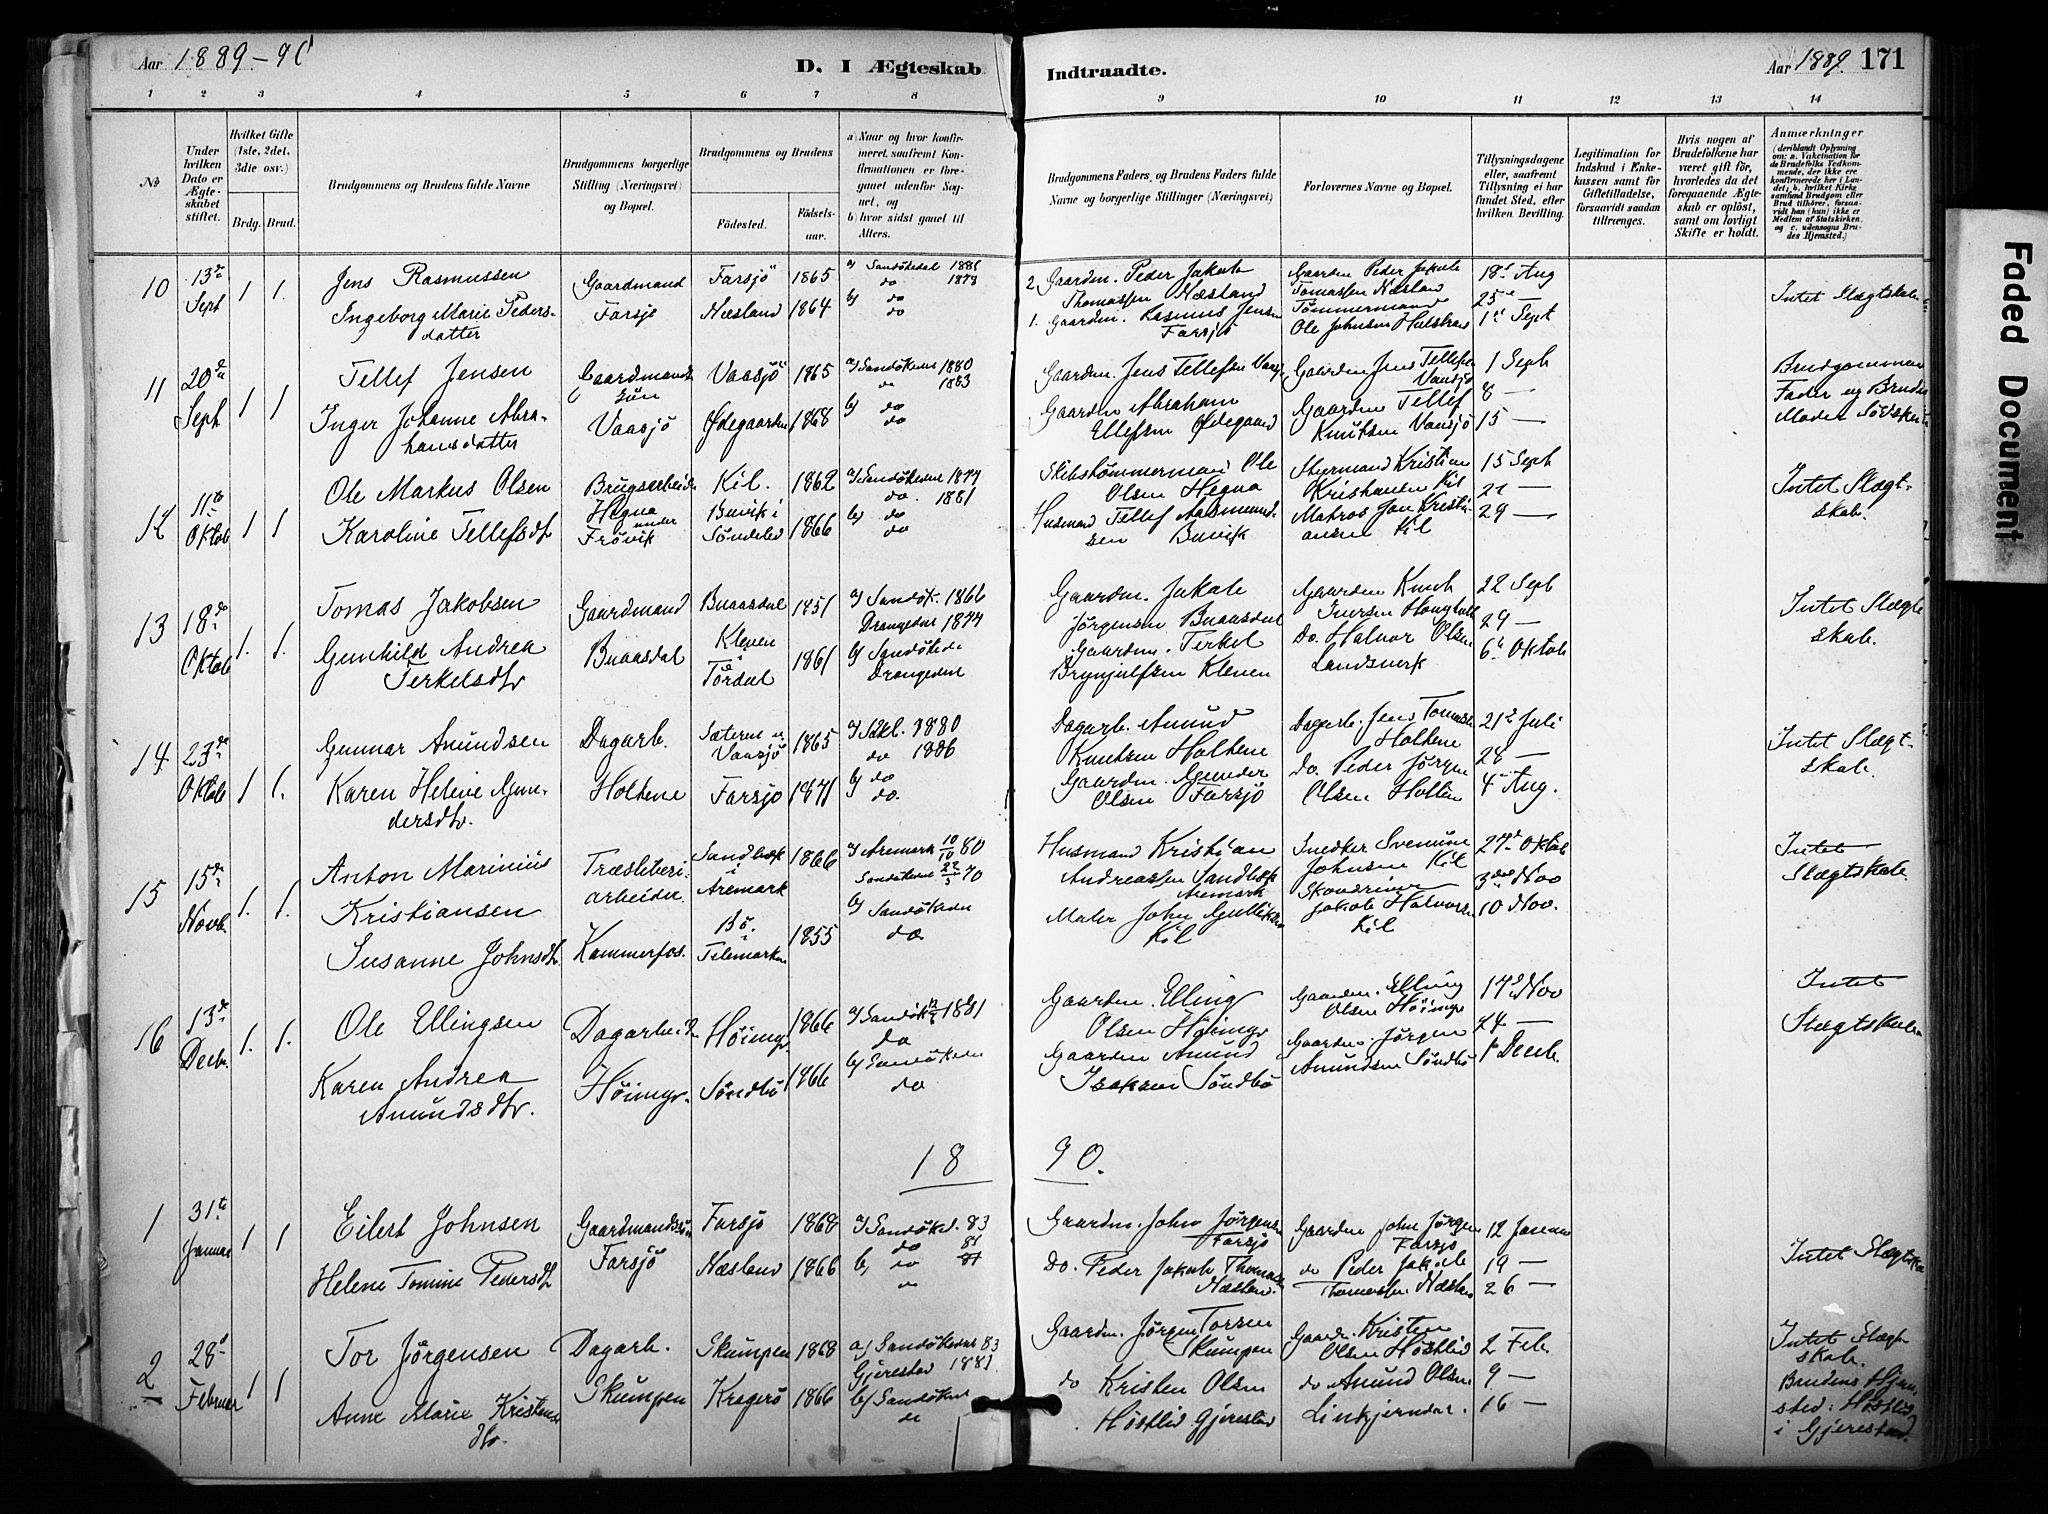 Aar 1889-90
D. I Ægteskab
Indtraadte.
Aar 1889. 171
1 2 3 4 5 6 7 8 9 10 11 12 13 14
No
Under hvilken Dato er Ægteskabet stiftet.
Hvilket Gifte (1ste, 2det, 3die osv.)
Brdg. Brud.
Brudgommens og Brudens fulde Navne
Brudgommens borgerlige Stilling (Næringsvei) og Bopæl.
Brudgommens og Brudens
Födested.
Födselsaar.
a) Naar og hvor konfirmeret, saafremt Konfirmationen er foregaaet udenfor Sognet, og
b) hvor sidst gaaet til Alters.
Brudgommens Faders og Brudens Faders fulde Navne og borgerlige Stillinger (Næringsvei)
Forlovernes Navne og Bopæl.
Tillysningsdagene eller, saafremt Tillysning ei har fundet Sted, efter hvilken Bevilling.
Legitimation for Indskud i Enkekassen samt for Giftetilladelse, forsaavidt saadan tiltrænges.
Hvis nogen af Brudefolkene har været gift før, hvorledes da det foregaaende Ægteskab er opløst, samt om lovligt Skifte er holdt.
Anmærkninger (deriblandt Oplysning om: a. Vakcination for de Brudefolks Vedkommende, der ikke ere konfirmerede her i Landet; b. hvilket Kirkesamfund Brudgom eller Brud tilhører, forsaavidt han (hun) ikke er Medlem af Statskirken, og c. udensogns Brudes Hjemsted.)
10 13de Sept 1 1. Jens Rasmussen Gaardmand Farsjö 1865 a) Sandökedal 1881
Ingeborg Marie Pedersdatter Farsjö Næsland 1864 do 1878
b) do
do
2 Gaardm. Peder Jakob Thomassen Næsland
1. Gaardm. Rasmus Jensen Farsjö
Gaardm Peder Jakob Tomassen Næsland
Tömmermand Ole Johnsen
18de Aug
25 —
1ste Sept
Intet Slægtskab
11 20de Sept 1 1 Tellef Jensen Gaardmandssön Vaasjö 1865 1880
Inger Johanne Abrahamsdatter Vaasjö Ødegaarden 1868 do 1883
b) do
do
Gaardm. Jens Tellefsen
Gaardm Abraham Ellefsen Ødegaard
Gaardm Jens Tellefsen Vaasjö
Gaardm Tellef Knutsen Vaasjö
1 Sept
8 —
15 —
Brudgommens Fader og Brudens Moder Södskend
12 11te Oktob 1 1 Ole Markus Olsen Kil. 1862
Karoline Tellefsdtr Hegna under Frövik Buvik i Söndeled 1866 do. 1881
b) do
do
Skibstömmermand Ole Olsen Hegna
Husmand Tellef Aasmundsen Buvik
Styrmand Kristian Kristiansen Kil
Matros Jan Kristiansen Kil
15 Sept
22 —
29 —
Intet Slægtskab.
13 18de Oktob 1. 1. Tomas Jakobsen Gaardmand Buaasdal 1851 a) Sandök. 1866
Gunhild Andrea Terkelsdtr Buaasdal Kleven i Tördal 1861 Drangedal 1874
b) Sandökeda
Drangedal
Gaardm. Jakob Jörgensen Buaasdal
Gaardm. Terkel Brynjulfsen Kleven
Gaardm Knut Iversen
Do. Halvor Olsen Landsverk
22 Sept
29 —
6te Oktob
Intet Slægtskab.
14 23de Oktob 1 1. Gunnar Amundsen Dagarb. 1865 1880
Karen Helene Gundersdtr. Holtene Farsjö 1871 do 1886
b) do
do.
Dagarb. Amund Knutsen Holtene
Gaardm. Gunder Olsen Farsjö
Dagarb. Jens Tomassen Holtene
Do. Peder Jörgen Olsen Holten
21de Juli
28 —
4de Aug.
Intet Slægtskab.
15 15de Novb. 1. 1. Anton Marinius Kristiansen Træsliberiarbeider Sandbæk i Aremark 1866 a) Aremark 10/10 80
Susanne Johnsdtr Kammerfos. Bö i Telemarken 1855 70
b) Sandökeda
do
Husmand Kristian Andreassen Sandbæk Aremark
Maler John Gulliksen Kil
Snedker Johnsen Kil
Jakob Halvorsen Kil
27de Oktob
3die Nov
10 Nov.
Intet Slægtskab
16 13de Decbr. 1. 1. Ole Ellingsen Dagarbeid Höimyr 1866 1881
Karen Andrea Amundsdtr. Höimyr Söndbö 1866 do
b) Sandökedal
do
Gaardm. Elling Olsen Höimyr
Gaardm Amund Isaksen Söndbö
Gaardm. Elling Olsen Höimyr
Gaardm. Jörgen Amundsen Söndbö
17de Nov
24 —
1ste Decb.
Intet Slægtskab
18 90.
1 31te Januar 1 1 Eilert Johnsen Gaardmandssön Farsjö 1868 a) Sandöked. 83
Helene Tomine Pedersdtr Farsjö Næsland 1866 do 81
b) do
do
Gaardm. John Jörgensen Farsjö
do. Peder Jakob Thomassen Næsland.
Gaardm John Jörgensen Farsjö
do Peder Jakob Thomassen Næsland
12 Januar
19 —
26 —
Intet Slægtskab
2 28de Februar 1 1 Tor Jörgensen Dagarb. Skumpen 1868 a) Sandökedal 83
Anne Marie Kristensdtr. Skumpen Kragerö 1866 Gjerestad 1881
b) Sandökedal
do
Gaardm. Jörgen Torsen Skumpen
do Kristen Olsen Höstlid Gjerestad
Gaardm. Kristen Olsen Höstlid
do Amund Olsen
2 Feb.
9 —
16 —
Intet Slægtskab.
Brudens Hjemsted: Höstlid i Gjerestad.
Faded Document